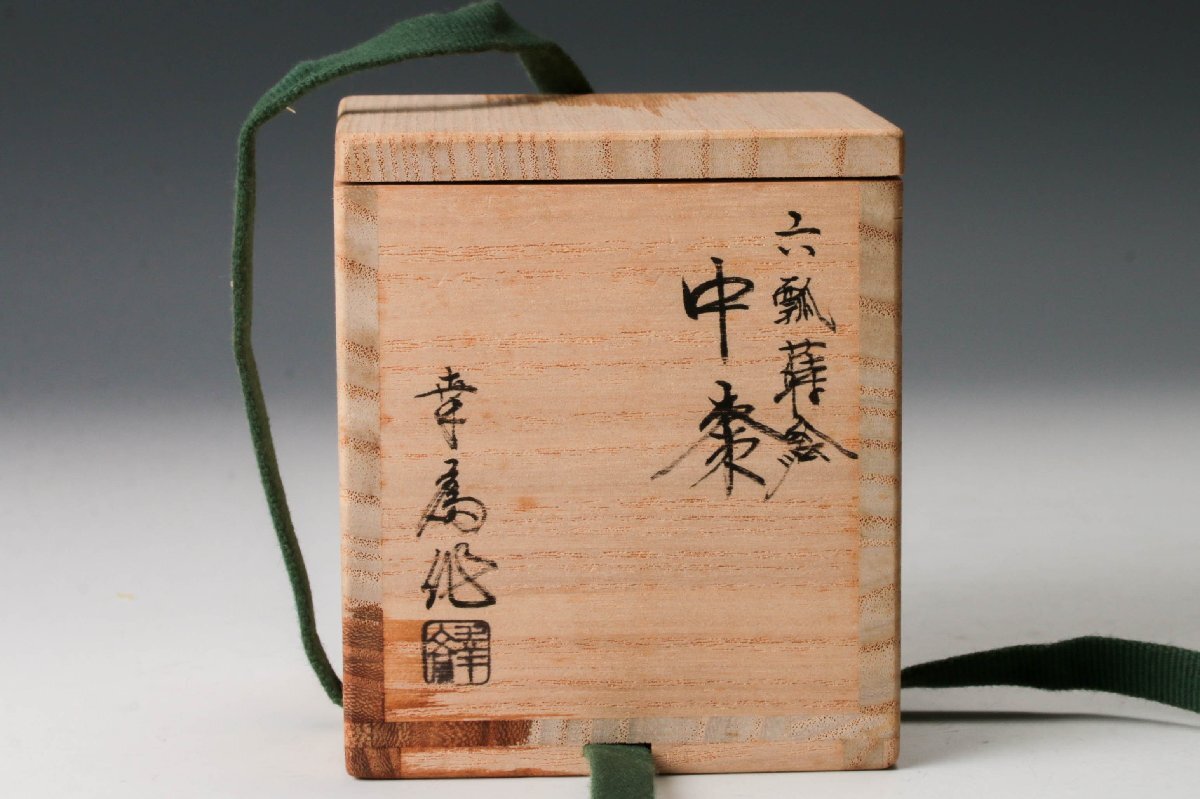 六瓢蒔絵
中棗
幸斎作